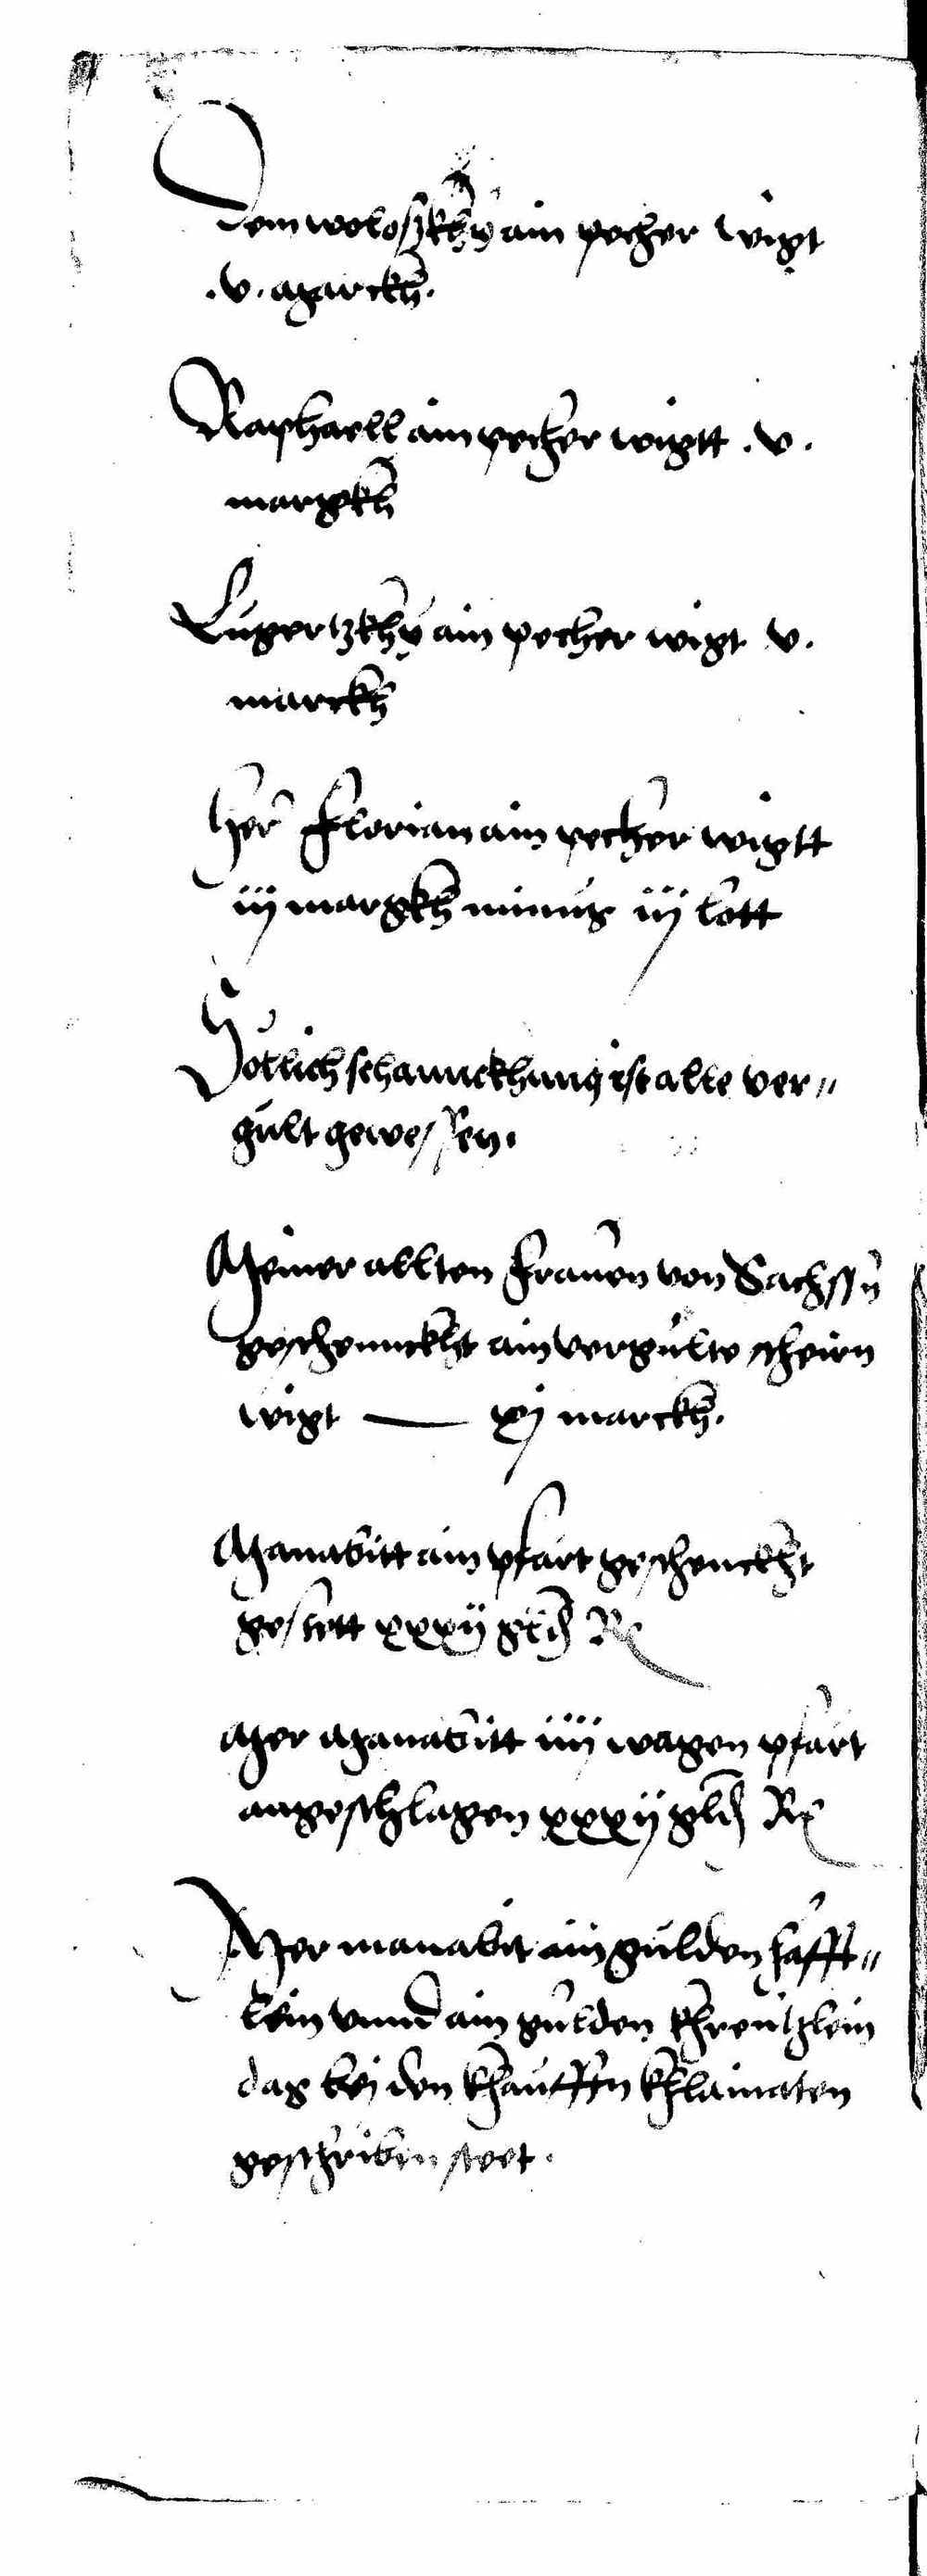 Dem woloszkhÿ ain pecher wigt
.v. marckh.
Raphaell ain pecher wigtt .v.
margkh
Lugertzkhÿ ain pecher wigt v.
marckh
her Florian ain pecher wigtt
iij margkh minus iij lott
Sotlich schannckhung ist alle ver„
gult gewessen.
Meiner allten frauen von Sachssn
geschennckht ain vergulte scheirn
wigt — xj marckh.
Manabitt ain pfärt geschenckht
gestett xxxij gld Rx
Mer Manabitt iiij wagen pfärt
angeschlagen xxxij gld Rx
Mer manabit ain gulden häfft„
lein vnnd ain gulden khreutzlein
das bej den khaufftn khlainaten
geschriben stet.